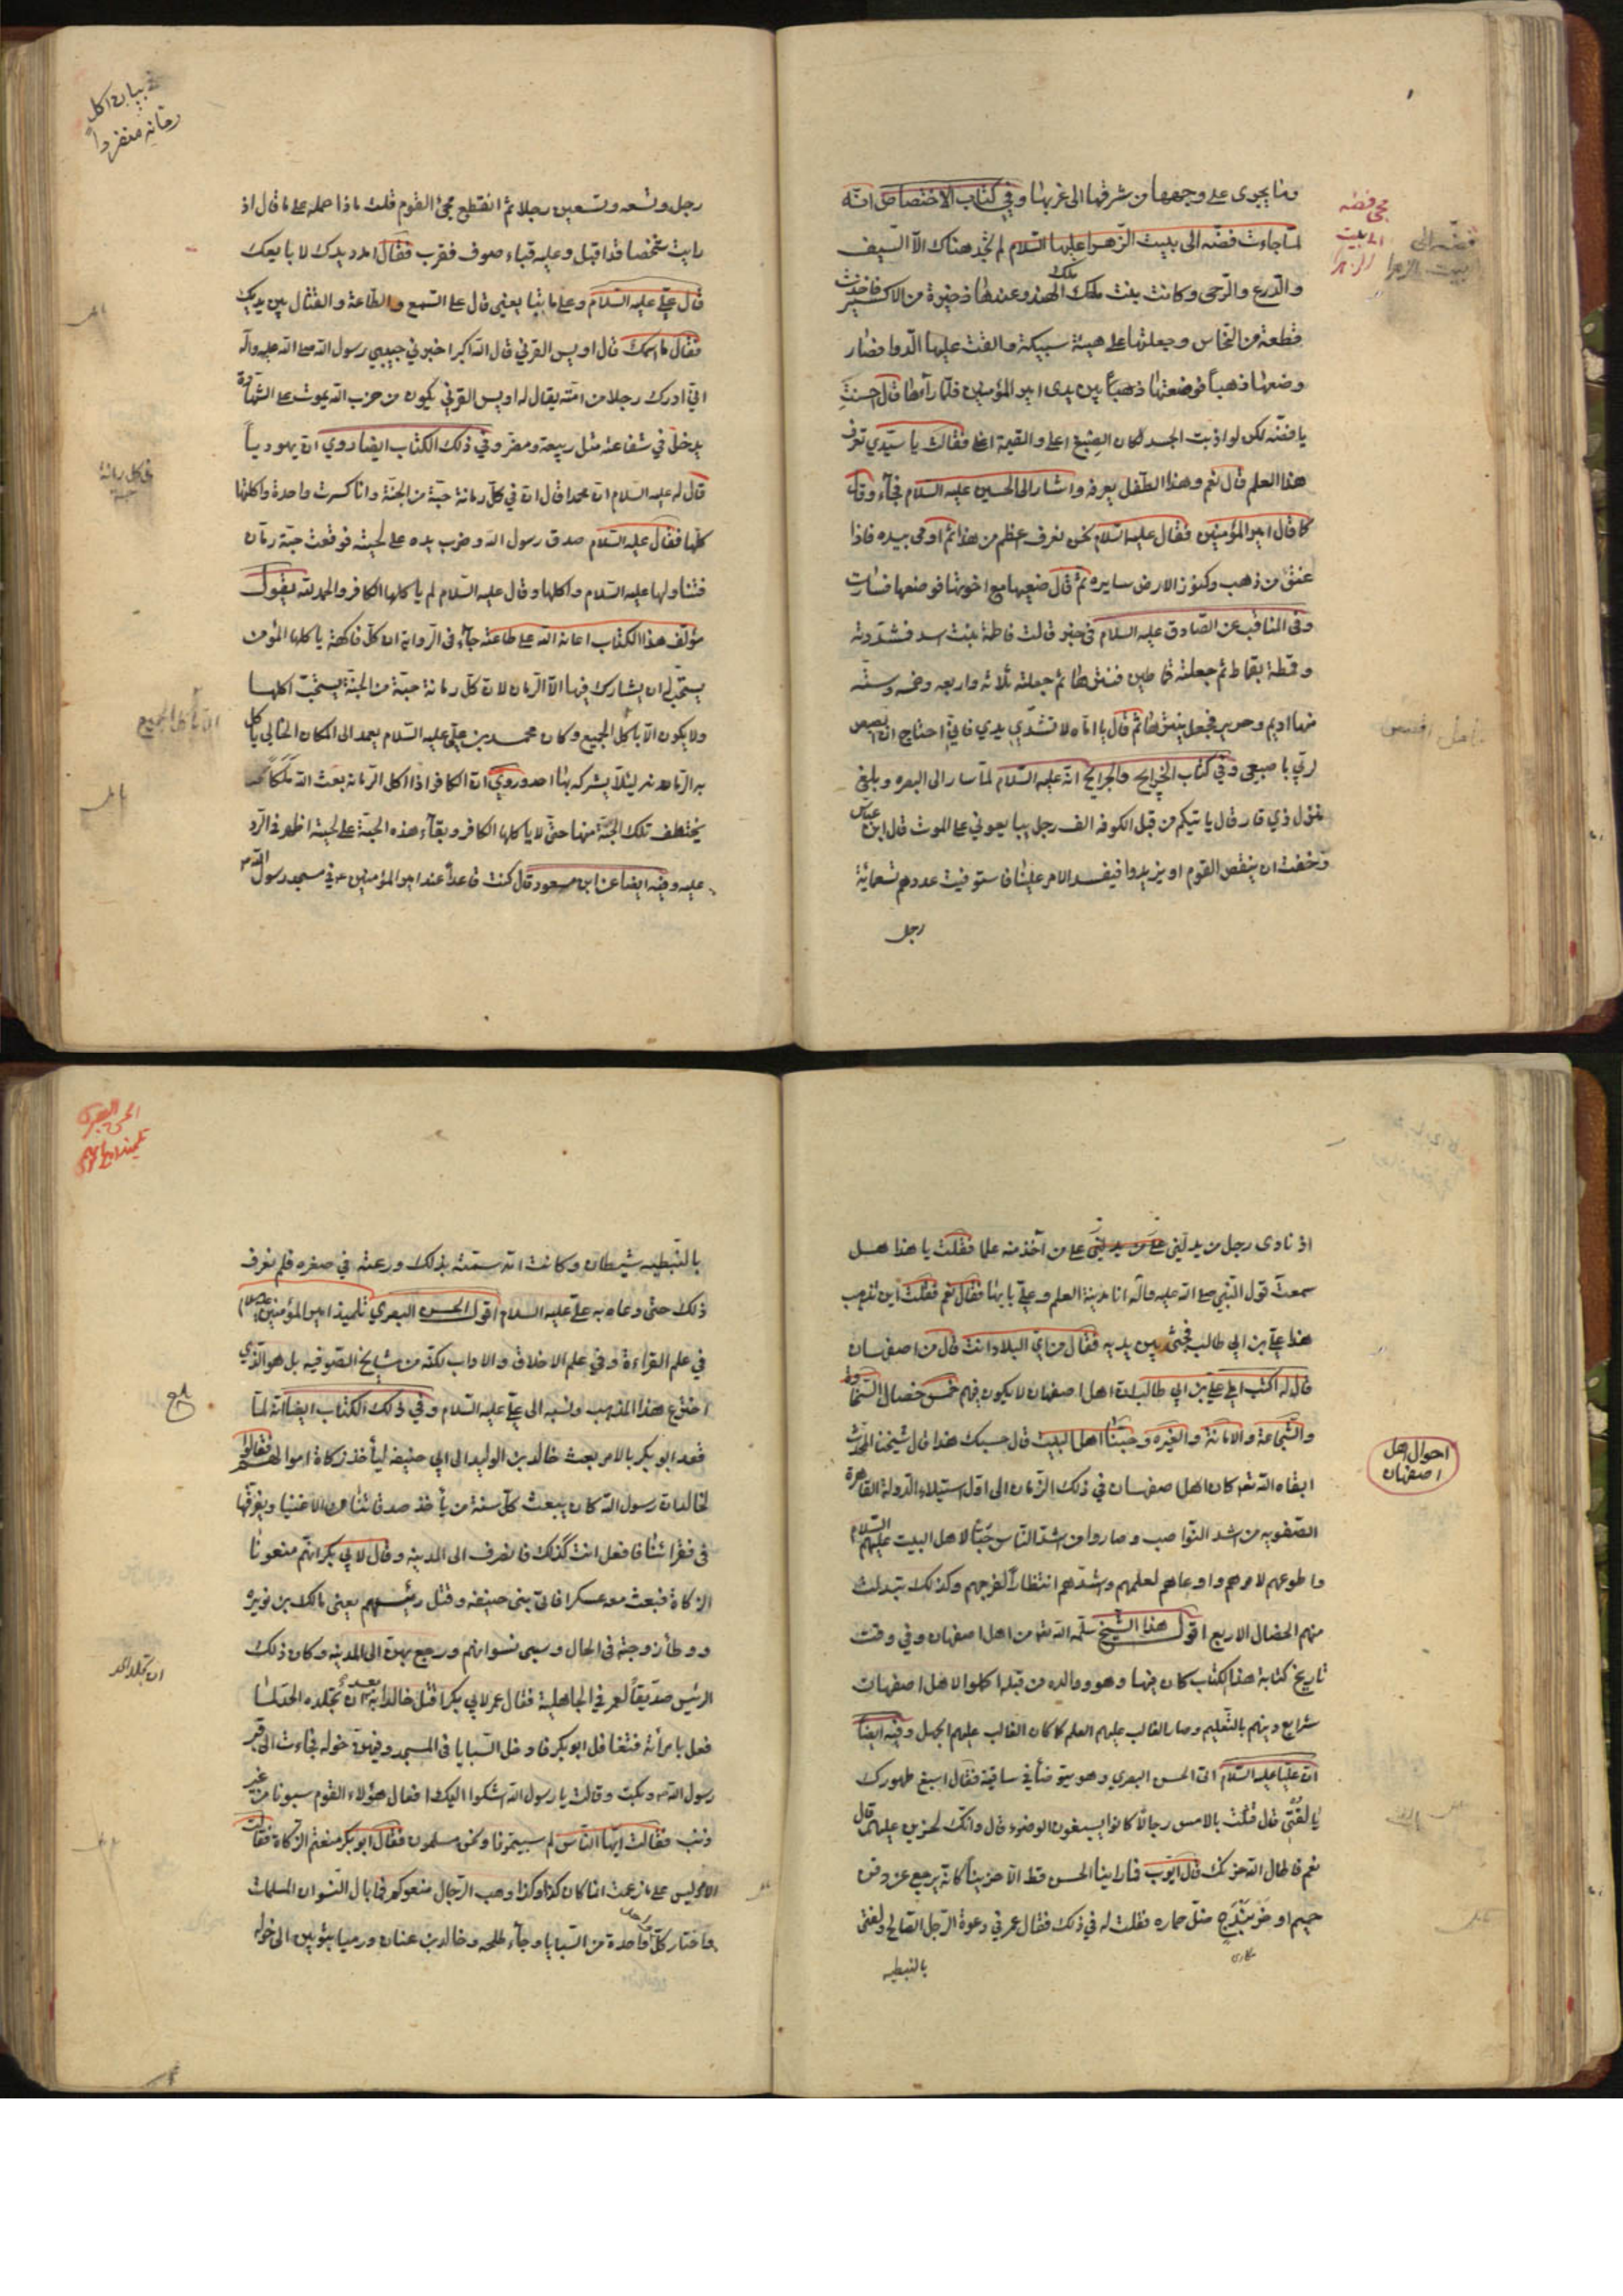 وما يجري على وجهها من شرقها الى غربها وفي كتاب الاختصاص انه
لما جاءت فضه الى بيت الزهرا عليها السلام لم تجد هناك الا السيف
والدرع والرحى وكانت بنت ملك الهند وعندها ذخيرة من الاكسير فاخذت
قطعة من النحاس وجعلتها على هيئة سبيكة والقت عليها الدوا فصار
وضعها ذهباً فوضعتها ذهبا بين يدى امير المؤمنين فلما رآها قال احسنت
يا فضه لكن لو اذبت الجسد لكان الصبغ اعلى والقيمة اغلى فقالت يا سيدي تعرف
هذا العلم قال نعم وهذا الطفل يعرفه واشار الى الحسين عليه السلام فجآء وقال
كما قال امير المؤمنين فقال عليه السلام نحن نعرف اعظم من هذا ثم اومى بيده فاذا
عنق من ذهب وكنوز الارض سايره ثم قال ضعيها مع اخوتها فوضعها فسارت
وفى المناقب عن الصادق عليه السلام فى خبر قالت فاطمة بنت اسد فشددته
وقمطة بقماط ثم جعلته قماطين فنتش‍ها ثم جعلته ثلاثه واربعه وخمسه وسته
منها اديم وحرير فجعل ينتش‍ها ثم قال يا اماه لا تشدي يدي فاني احتاج ان ابصبص
لربي باصبعي وفي كتاب الخرايج والجرايح انه عليه السلام لما سار الى البصره وبلغ
نزل ذي قار قال ياتيكم من قبل الكوفه الف رجل يبايعوني على الموت قال ابن عباس
وخفت ان ينقص القوم او يزيدوا فيفسد الامر علينا فاستوفيت عددهم تسعمائة
رجل
مجئ فضه
الى بيت
الزهرا
فضه الى
بيت الزهرا
في بيان اكل
رمانه منفرداً
رجل وتسعه وتسعين رجلا ثم انقطع مجئ القوم قلت ماذا حمله على ما قال اذ
رايت شخصا قد اقبل وعليه قباء صوف فقرب فقال امدد يدك لا بايعك
قال علي عليه السلام وعلى ما تبا يعني قال على السمع والطاعة والقتال بين يديك
فقال ما اسمك قال اويس القرني قال الله اكبر اخبرني حبيبي رسول الله صلى الله عليه واله
اني ادرك رجلا من امته يقال له اويس القرني يكون من حزب الله يموت على الشهادة
يدخل في شفاعته مثل ربيعة ومضر وفي ذلك الكتاب ايضا روي ان يهودياً
قال له عليه السلام ان محمدا قال ان في كل رمانة حبة من الجنة وانا كسرت واحدة واكلتها
كلها فقال عليه السلام صدق رسول الله وضرب يده على لحيته فوقعت حبة رمان
فتناولها عليه السلام واكلها وقال عليه السلام لم ياكلها الكافر والحمد لله يقول
مؤلف هذا الكتاب اعانه الله على طاعته جآء فى الرواية ان كل فاكهة ياكلها المؤمن
يستحب له ان يشارك فيها الا الرمان لان كل رمانة حبة من الجنة يستحب اكلها
ولا يكون الا باكل الجميع وكان محمد بن علي عليه السلام يعمد الى المكان الخالي ياكل
به الرمان لئلا يشركه بها احد وروي ان الكافر اذا اكل الرمانه بعث الله ملكاً
يختطف تلك الحبة منها حتى لا ياكلها الكافر وبقآء هذه الحبة على لحيته اظهر في الرد
عليه وفيه ايضا عن ابن مسعود قال كنت قاعداً عند امير المؤمنين في مسجد رسول الله
في كل رمانة
حبة
اذ نادى رجل من يدلني على من يدلني على من آخذ منه علما فقلت يا هذا هل
سمعت قول النبي صلى الله عليه وآله انا مدينة العلم وعلي بابها فقال نعم فقلت اين تذهب
هذا علي بن ابي طالب فجئ بين يديه فقال من اي البلاد انت قال من اصفهان
قال له اكتب املى علي بن ابي طالب ان اهل اصفهان لا يكون فيهم خمس خصال السخاوة
والشجاعة والامانة والغيره وحبنا اهل البيت قال حسبك هذا قال شيخنا المحدث
ابقاه الله تعا كان اهل اصفهان في ذلك الزمان الى اول استيلاء الدولة القاهرة
الصفويه من اشد النواصب وصاروا من اشد الناس حبّاً لاهل البيت عليهم السلام
واطوعهم لامرهم واوعاهم لعلمهم واشدهم انتظاراً لفرجهم وكذلك تبدلت
منهم الخصال الاربع اقول هذا الشيخ سلمه الله تعا من اهل اصفهان وفي وقت
تاريخ كتابة هذا الكتاب كان فيها وهو ووالده من قبله اكملوا لاهل اصفهان
شرايع دينهم بالتعليم وصار الغالب عليهم العلم كما كان الغالب عليهم الجهل وفيه ايضاً
ان عليا عليه السلام اتى الحسن البصري وهو يتوضأ في ساقية فقال اسبغ طهورك
يا لفتى قال قتلت بالامس رجالاً كانوا يسبغون الوضوء قال وانك لحزين عليهم قال
نعم فاطال الله حزنك قال ايوب فما راينا الحسن قط الا حزيناً كانه يرجع عن دفن
حميم او خربندج ضل حماره فقلت له في ذلك فقال عمل في دعوة الرجل الصالح ولفتى
بالنبطيه
احوال اهل
اصفهان
الحسن البصري
تلميذ امير المؤمنين
بالنبطيه شيطان وكانت امه سمته بذلك ودعته في صغره فلم نعرف
ذلك حتى دعاه به علي عليه السلام اقول الحسن البصري تلميذ امير المؤمنين
في علم القراءة وفي علم الاخلاق والاداب لكنه من مشايخ الصوفيه بل هو الذي
اخترع هذا المذهب ونسبه الى علي عليه السلام وفي ذلك الكتاب ايضا انه لما
قعد ابو بكر بالامر بعث خالد بن الوليد الى ابي حنيفه ليأخذ زكاة اموالهم فقالوا
لخالد ان رسول الله كان يبعث كل سنة من يأخذ صدقاتنا من الاغنيا ويفرقها
فى فقرائنا فافعل انت كذلك فانصرف الى المدينه وقال لابي بكر انهم منعونا
الزكاة فبعث معه عسكرا فاتى بنى حنيفه وقتل رئيسهم يعني مالك بن نويره
ووطأ زوجته فى الحال وسبى نسوانهم ورجع بهن الى المدينه وكان ذلك
الرئيس صديقاً لعمر في الجاهلية فقال عمر لابي بكر اقتل خالدا به بعد ان تجلده الحد لما
فعل بامرأته فتغافل ابو بكر فادخل السبايا فى المسجد وفيهن خوله فجاءت الى قبر
رسول الله وبكت وقالت يا رسول الله اشكوا اليك افعال هؤلاء القوم سبونا من غير
ذنب فقالت ايها الناس لم سبيتمونا ونحن مسلمون فقال ابو بكر منعتم الزكاة فقالت
الامر ليس على ما زعمت انما كان كذا وكذا وهب الرجال منعوكم فما بال النسوان المسلمات
واختار كل واحد واحدة من السبايا وجآء طلحه وخالد بن عنان ورميا بثوبين الى خوله